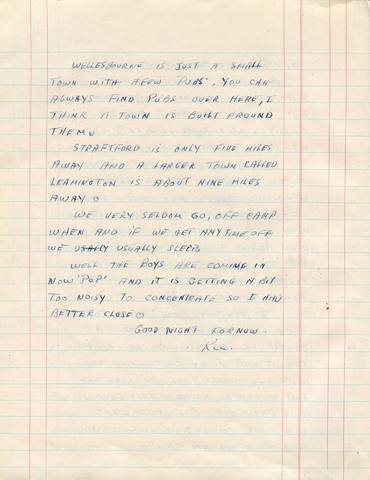 WELLESBOURNE IS JUST A SMALL
TOWN WITH A FEW "PUBS", YOU CAN
ALWAYS FIND PUBS OVER HERE, I
THINK A TOWN IS BUILT AROUND
THEM.
STRAFTFORD IS ONLY FIVE MILES
AWAY AND A LARGER TOWN CALLED
LEAMINGTON IS ABOUT NINE MILES
AWAY.
WE VERY SELDOM GO, OFF CAMP
WHEN AND IF WE GET ANY TIME OFF
WE USUALLY SLEEP.
WELL THE BOYS ARE COMING IN
NOW "POP" AND IT IS GETTING A BIT
TOO NOISY TO CONCENTRATE SO I HAD
BETTER CLOSE.
GOOD NIGHT FOR NOW.